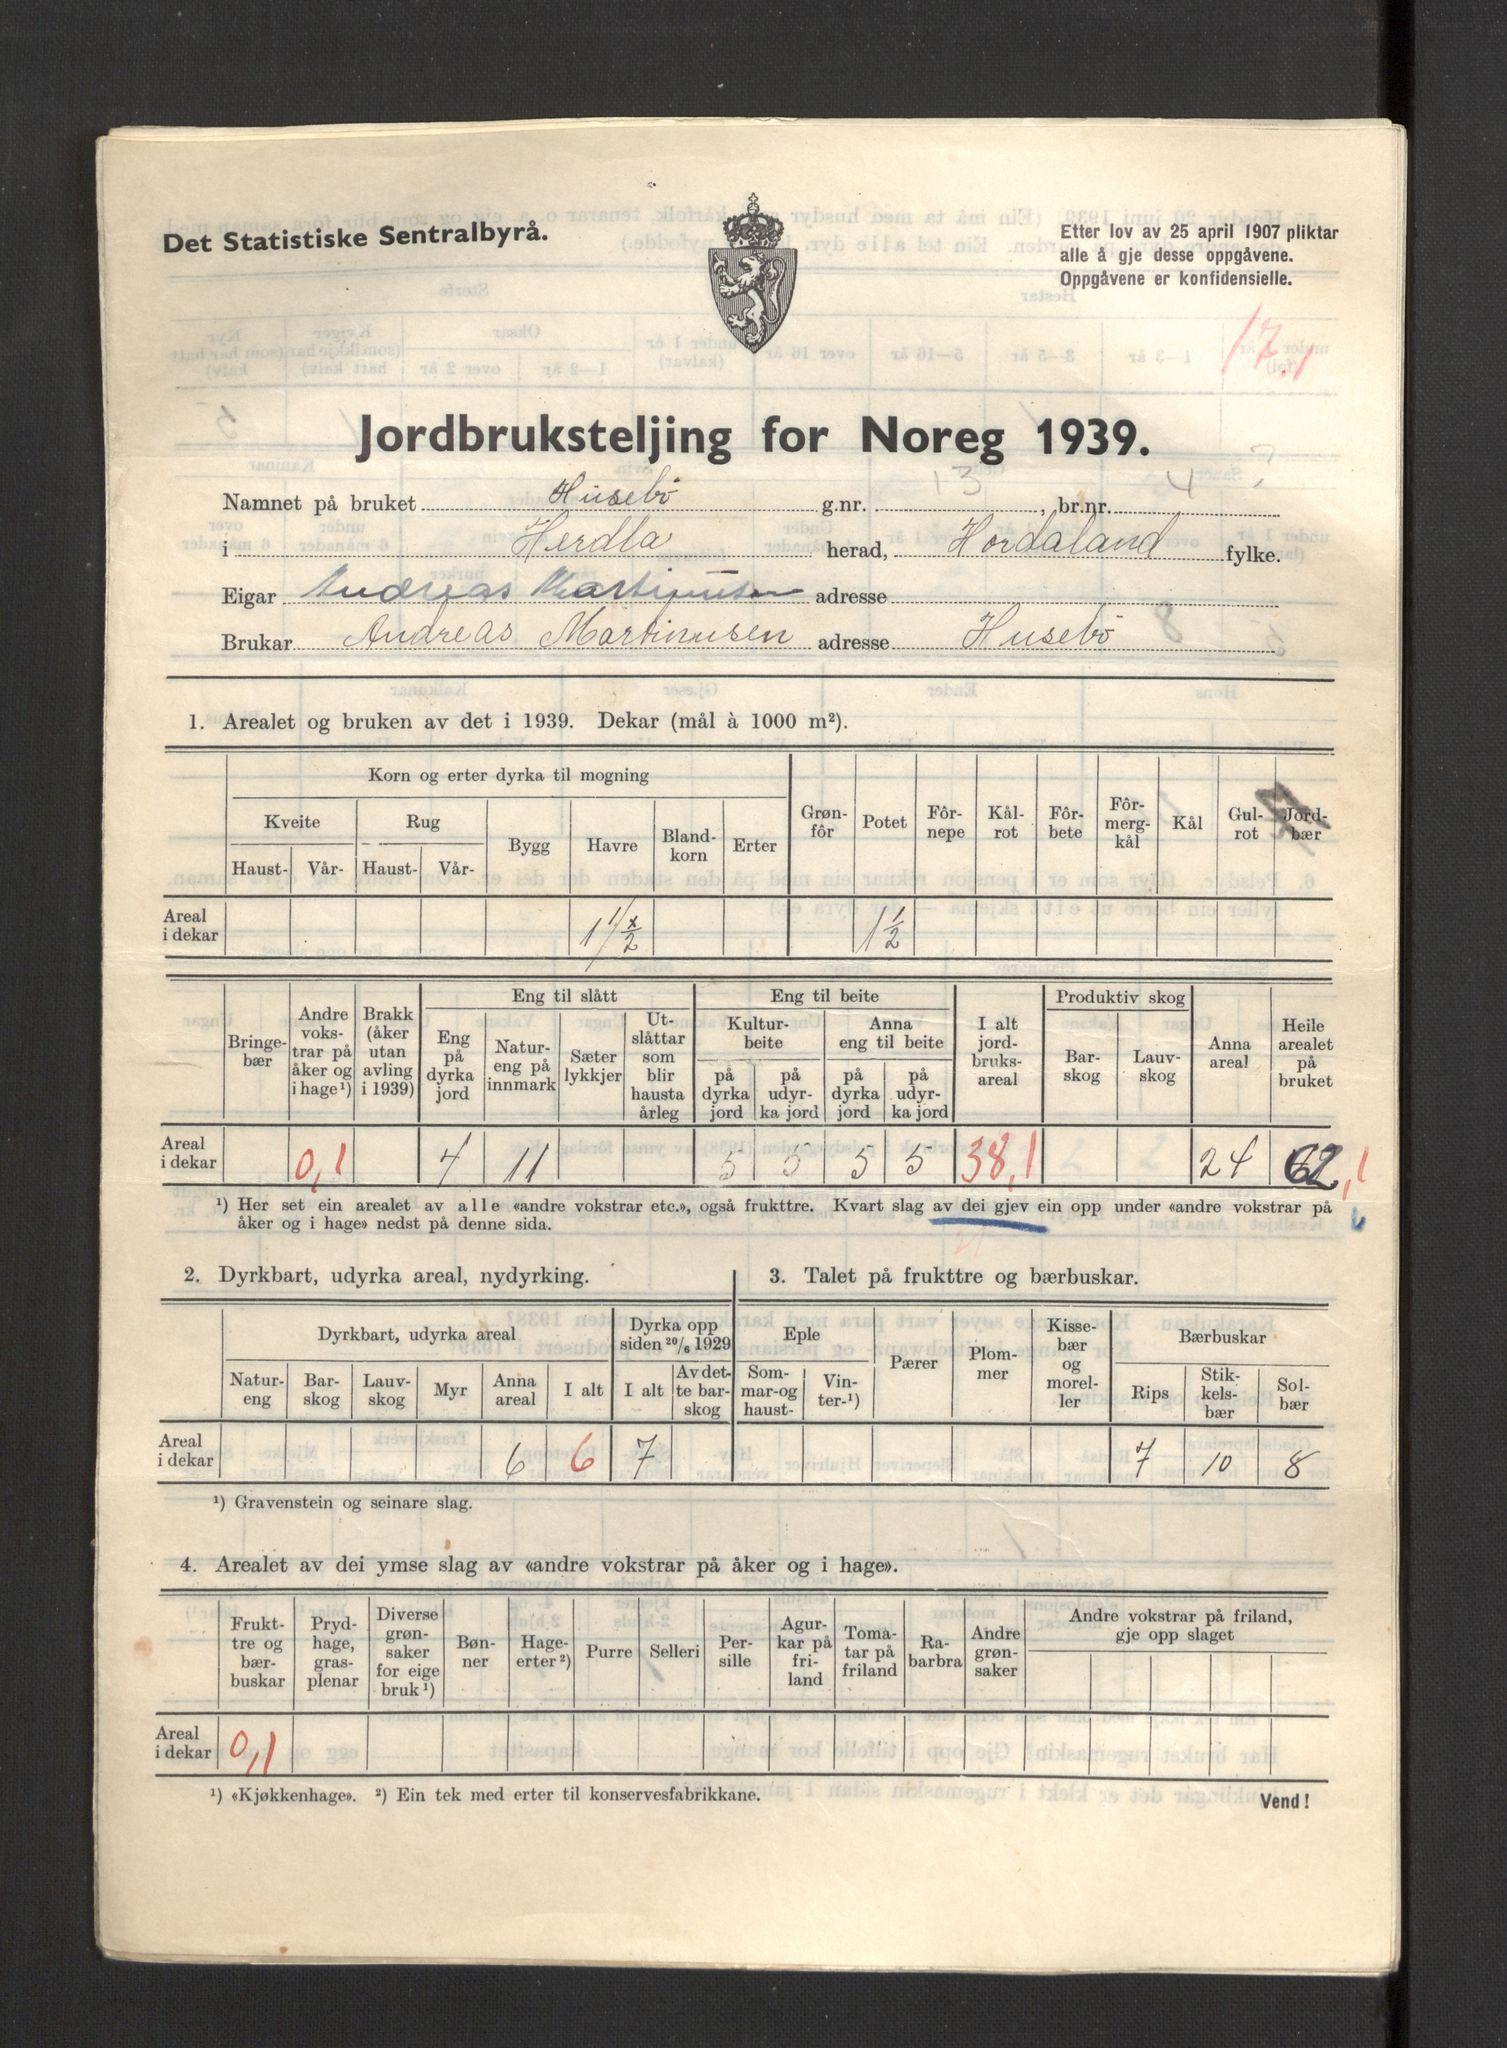 Det Statistiske Sentralbyrå.
Etter lov av 25 april 1907 pliktar
alle å gje desse oppgåvene.
Oppgåvene er konfidensielle.
17.1
Jordbruksteljing for Noreg 1939.
Namnet på bruket Husebö g.nr. 13, br.nr. 4
i Herdla herad, Hordaland fylke.
Eigar Andreas Martinusen adresse
Brukar Andreas Martinusen adresse Husebö
1. Arealet og bruken av det i 1939. Dekar (mål à 1000 m²).
Korn og erter dyrka til mogning
Kveite Rug Bygg Havre Blandkorn Erter Grønfôr Potet Fôrnepe Kålrot Fôrbete Fôrmergkål Kål Gulrot Jordbær
Haust- Vår- Haust- Vår-
Areal i dekar 1 1/2 1 1/2
Eng til slått Eng til beite Produktiv skog
Bringebær Andre vokstrar på åker og i hage¹) Brakk (åker utan avling i 1939) Eng på dyrka jord Natureng på innmark Sæterlykkjer Utslåttar som blir hausta årleg Kulturbeite Anna eng til beite I alt jordbruksareal Barskog Lauvskog Anna areal Heile arealet på bruket
på dyrka jord på udyrka jord på dyrka jord på udyrka jord
Areal i dekar 0,1 4 11 5 5 5 5 38,1 24 62,1
¹) Her set ein arealet av alle «andre vokstrar etc.», også frukttre. Kvart slag av dei gjev ein opp under «andre vokstrar på
åker og i hage» nedst på denne sida.
2. Dyrkbart, udyrka areal, nydyrking.
Dyrkbart, udyrka areal Dyrka opp siden 20/6 1929
Natureng Barskog Lauvskog Myr Anna areal I alt I alt Av dette barskog
Areal i dekar 6 6 7
¹) Gravenstein og seinare slag.
3. Talet på frukttre og bærbuskar.
Eple Pærer Plommer Kissebær og moreller Bærbuskar
Sommar-og haust- Vinter-¹) Rips Stikkelsbær Solbær
7 10 8
4. Arealet av dei ymse slag av «andre vokstrar på åker og i hage».
Frukttre og bærbuskar Prydhage, grasplenar Diverse grønsaker for eige bruk¹) Bønner Hageerter²) Purre Selleri Persille Agurkar på friland Tomatar på friland Rabarbra Andre grønsaker Andre vokstrar på friland, gje opp slaget
Areal i dekar 0,1
¹) «Kjøkkenhage». ²) Ein tek med erter til konservesfabrikkane.
Vend!